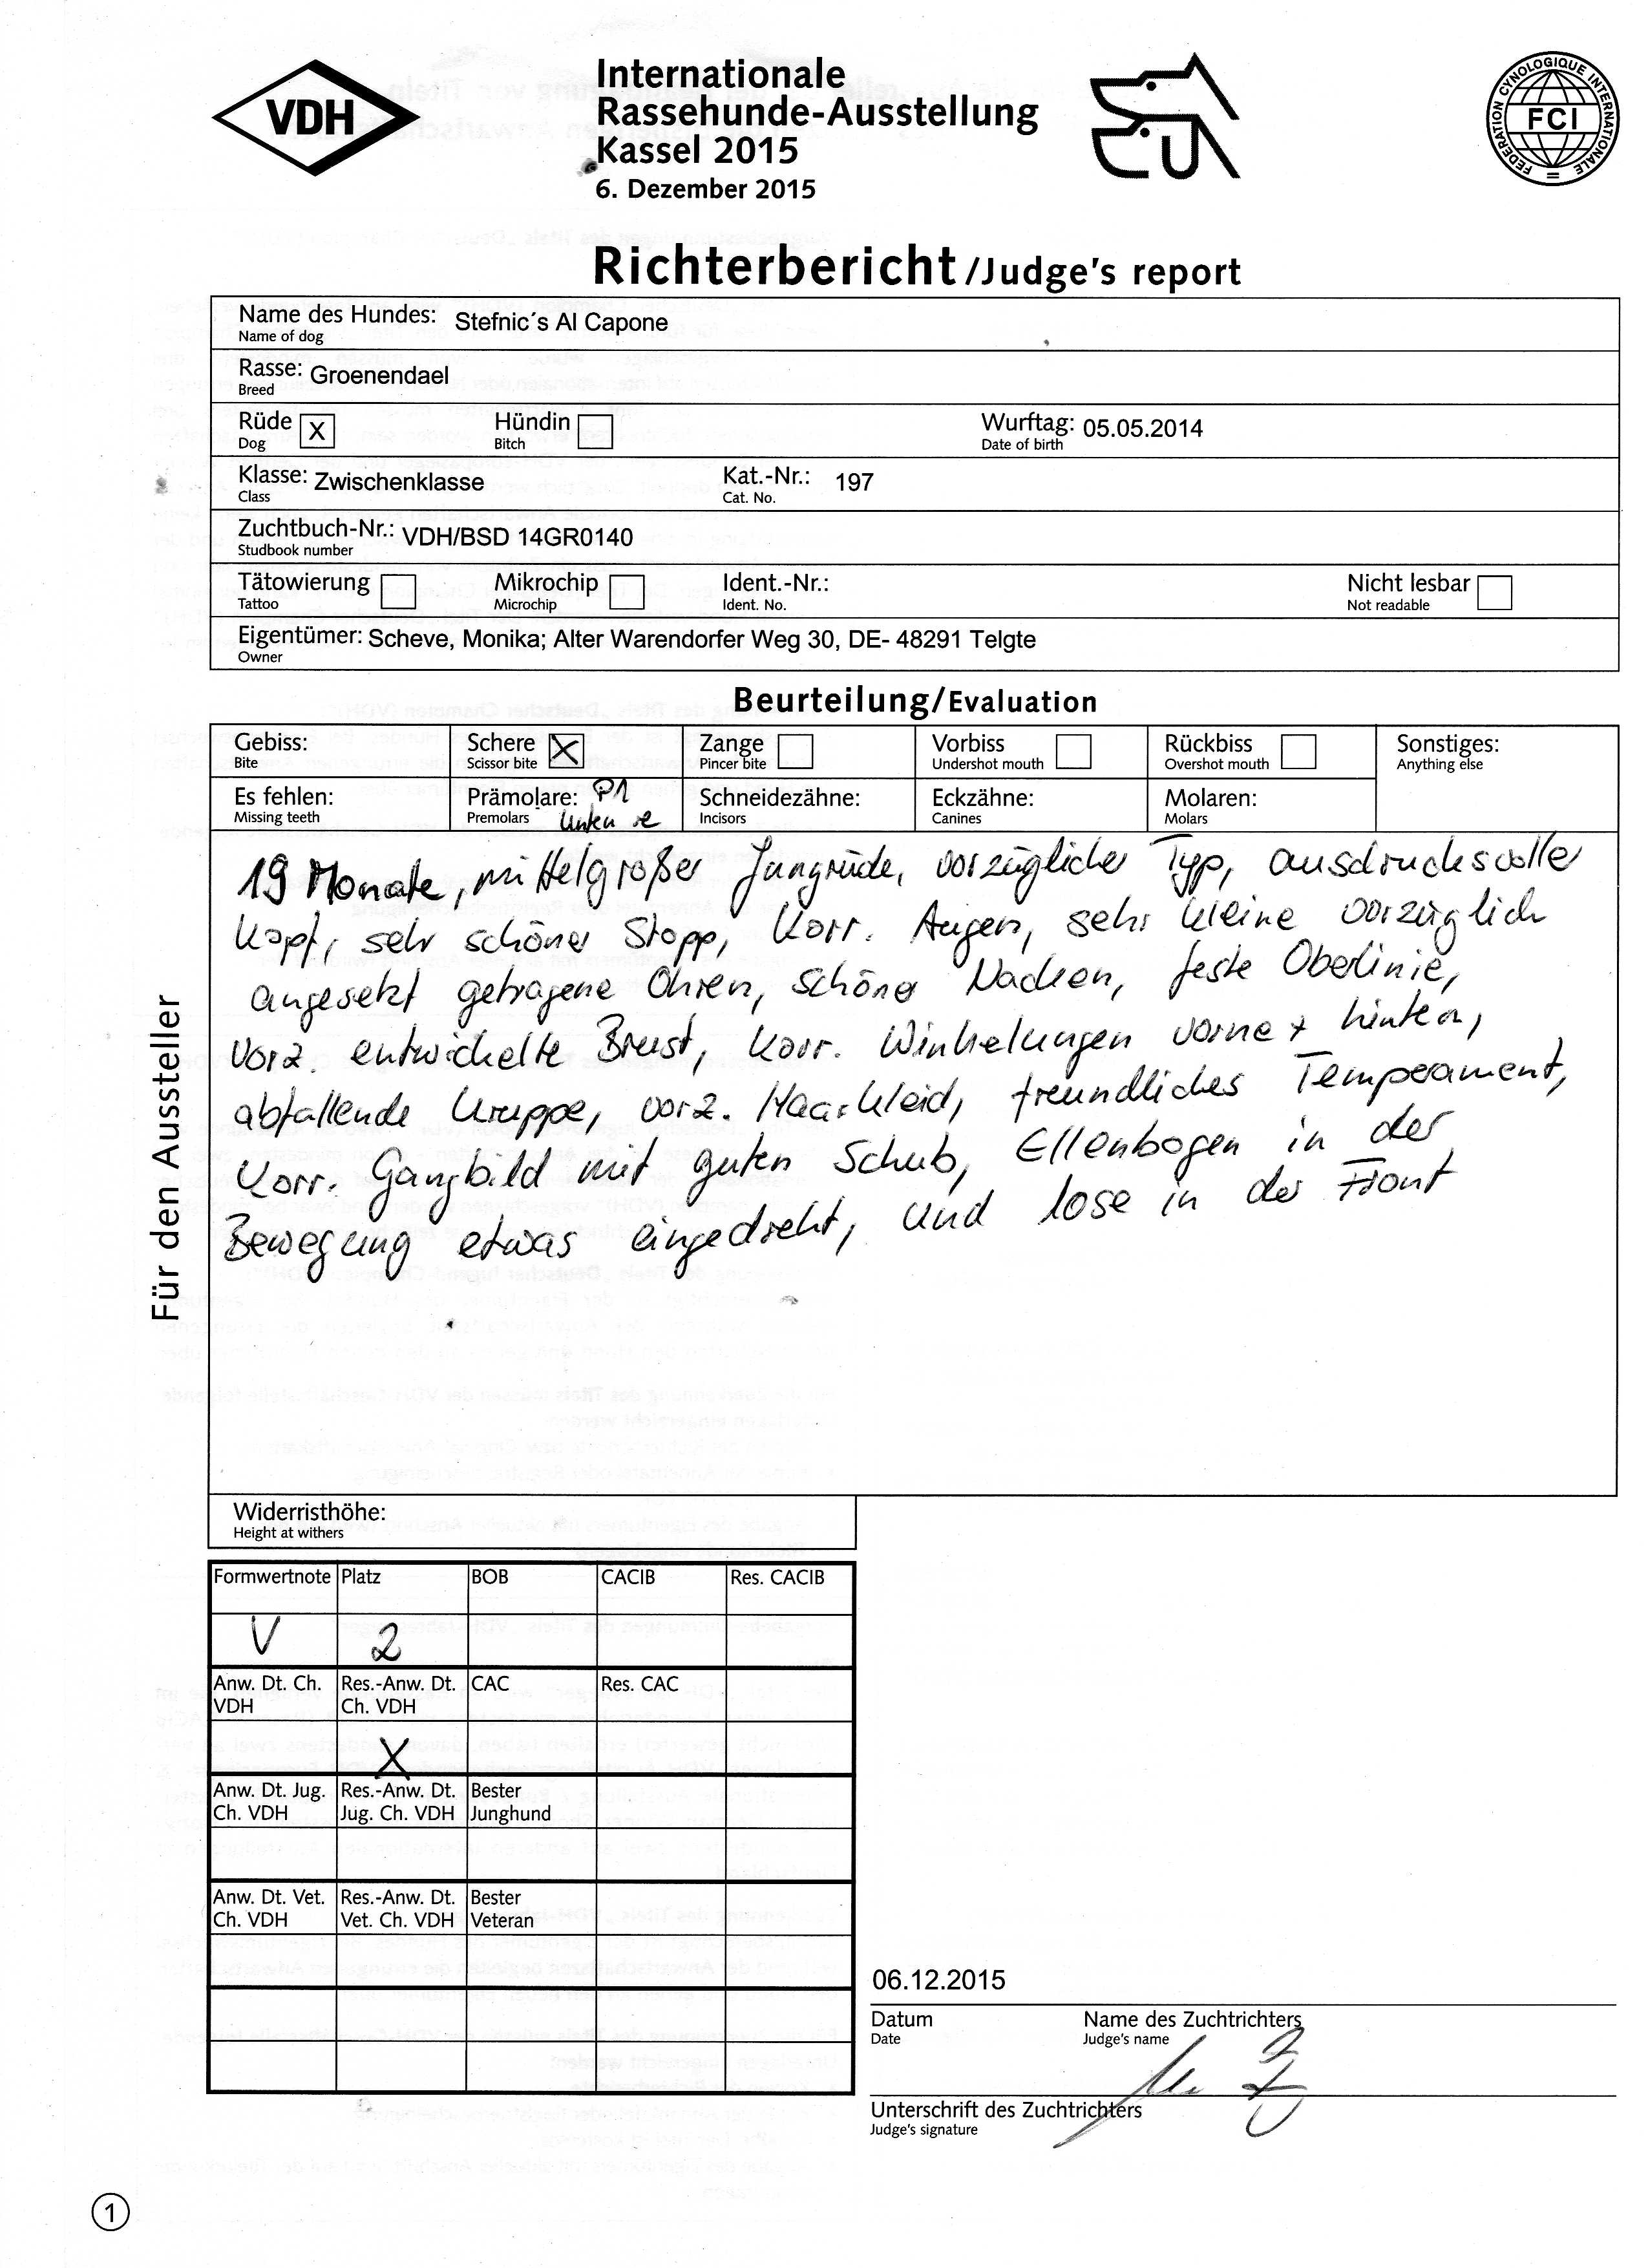 VDH
Internationale
Rassehunde-Ausstellung
Kassel 2015
6. Dezember 2015
FEDERATION CYNOLOGIQUE INTERNATIONALE
FCI
Richterbericht/Judge's report
Name des Hundes: Stefnic´s Al Capone
Name of dog
Rasse: Groenendael
Breed
Rüde X Hündin Wurftag: 05.05.2014
Dog Bitch Date of birth
Klasse: Zwischenklasse Kat.-Nr.: 197
Class Cat. No.
Zuchtbuch-Nr.: VDH/BSD 14GR0140
Studbook number
Tätowierung Mikrochip Ident.-Nr.: Nicht lesbar
Tattoo Microchip Ident. No. Not readable
Eigentümer: Scheve, Monika; Alter Warendorfer Weg 30, DE- 48291 Telgte
Owner
Beurteilung/Evaluation
Gebiss: Schere X Zange Vorbiss Rückbiss Sonstiges:
Bite Scissor bite Pincer bite Undershot mouth Overshot mouth Anything else
Es fehlen: Prämolare: P1 Schneidezähne: Eckzähne: Molaren:
Missing teeth Premolars unten re Incisors Canines Molars
19 Monate, mittelgroßer Jungrüde, vorzüglicher Typ, ausdrucksvoller
Kopf, sehr schöner Stopp, korr. Augen, sehr kleine vorzüglich
angesetzt getragene Ohren, schöner Nacken, feste Oberlinie,
vorz. entwickelte Brust, korr. Winkelungen vorne + hinten,
abfallende Kruppe, vorz. Haarkleid, freundliches Temperament,
Korr. Gangbild mit guten Schub, Ellenbogen in der
Bewegung etwas eingedreht, und lose in der Front
Für den Aussteller
Widerristhöhe:
Height at withers
Formwertnote Platz BOB CACIB Res. CACIB
V 2
Anw. Dt. Ch. Res.-Anw. Dt. CAC Res. CAC
VDH Ch. VDH
X
Anw. Dt. Jug. Res.-Anw. Dt. Bester
Ch. VDH Jug. Ch. VDH Junghund
Anw. Dt. Vet. Res.-Anw. Dt. Bester
Ch. VDH Vet. Ch. VDH Veteran
06.12.2015
Datum Name des Zuchtrichters
Date Judge's name
Unterschrift des Zuchtrichters
Judge's signature
1